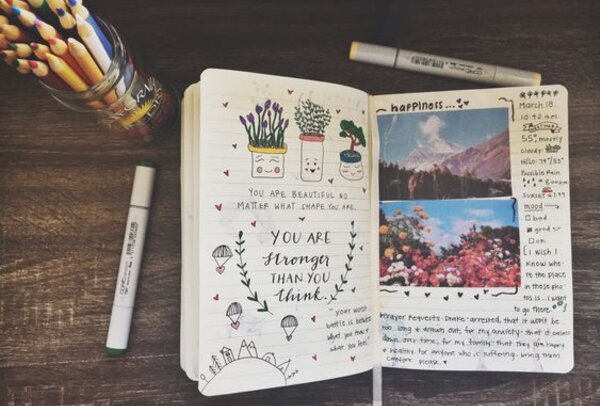 YOU ARE BEAUTIFUL NO
MATTER WHAT SHAPE YOU ARE.
YOU ARE
stronger
THAN YOU
think.
"your worst
battle is between
what you know &
what you feel"
happiness...
March 18.
10:42 a.m.
55° mostly
cloudy.
Hi/Lo: 74°/55°
Possible Rain
mood
bad
good
ok
[I wish I
knew whe-
re the place
in these pho-
tos is... I want
to go there
Prayer Requests: Drake- arrested, that it won't be
too long & drawn out, for my anxiety- that it calms
down over time, for my family- that they are happy
& healthy, for anyone who is suffering- bring them
comfort please.